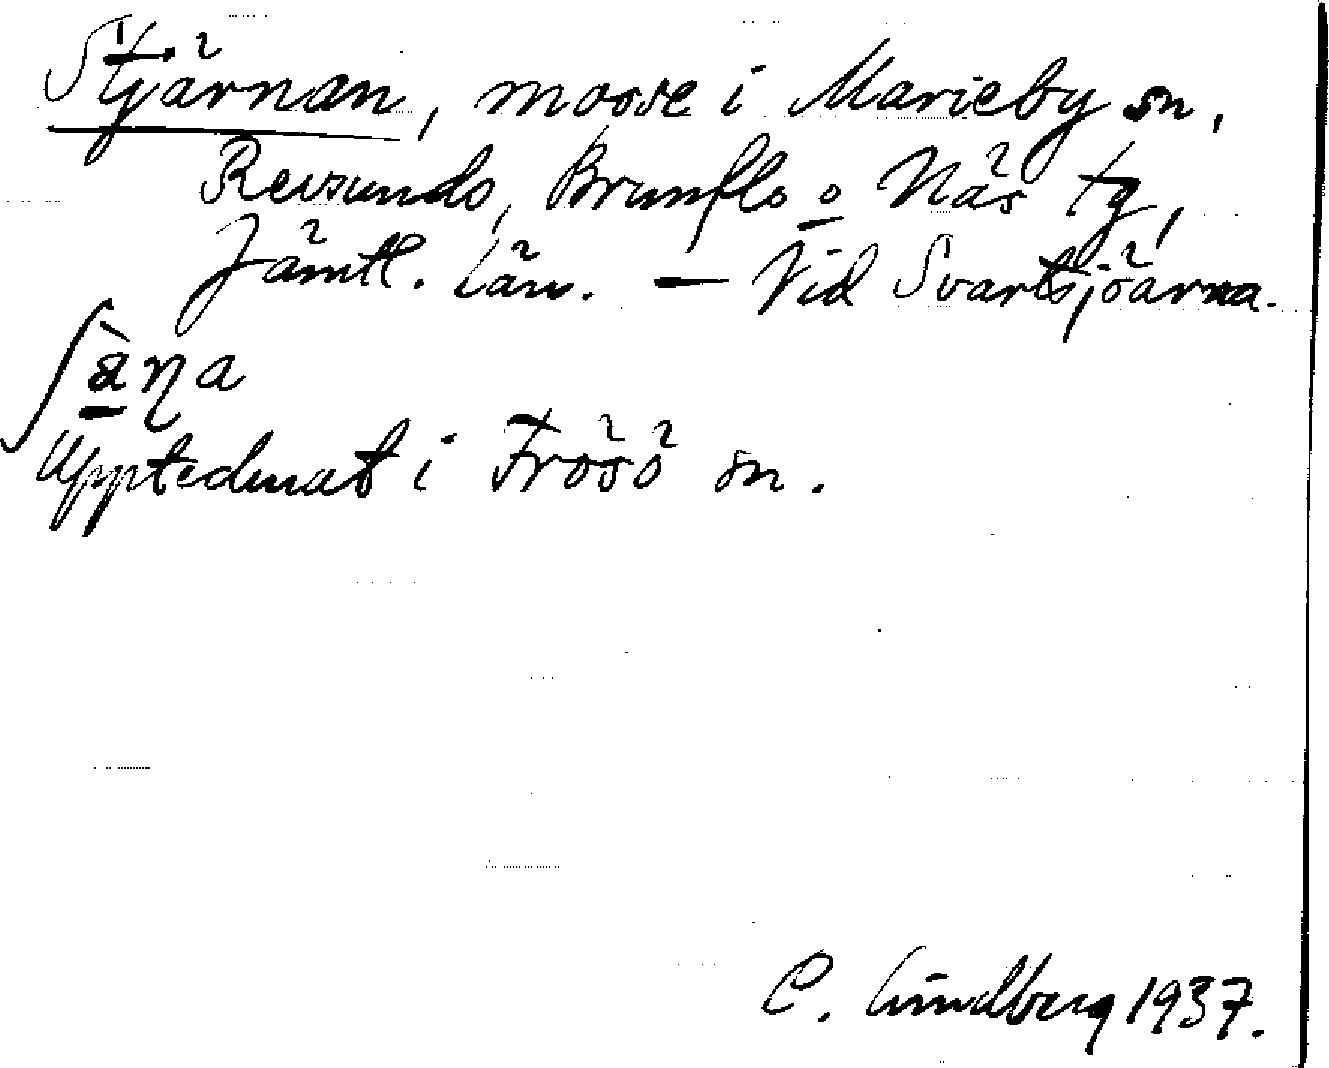 Stjärnan, mosse i Marieby sn,
Revsunds, Brunflo o Näs tg,
Jämtl. län. — Vid Svartsjöarna.
ʃæ̀ɳa
Upptecknat i Frösö sn.
C. Lindberg 1937.